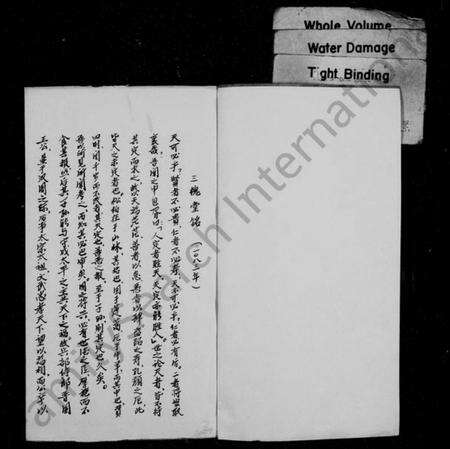 Whole Volume
Water Damage
Tight Binding
三槐堂銘
天可必乎?賢者不必貴,仁者不必壽。天不可必乎?仁者必有後。二者將安取
衷哉?吾聞之申包胥曰:「人定者勝天,天定亦能勝人。」世之論天者,皆不待
其定而求之,故以天為茫茫。善者以怠,惡者以肆。盜跖之壽,孔顏之厄,此
皆天之未定者也。松柏生于山林,其始也,困于蓬蒿,厄于牛羊,而其終也,貫
四時,閱千歲而不改者,其天定也。善惡之報,至于子孫,則其定也久矣。
吾以所見所聞考之,而其可必也審矣。國之將興,必有世德之臣,厚施而不
食其報,然後其子孫能與守文太平之主共天下之福。故兵部侍郎晉國
王公,顯于漢周之際,歷事太祖太宗,文武忠孝,天下望以為相,而公卒以
International